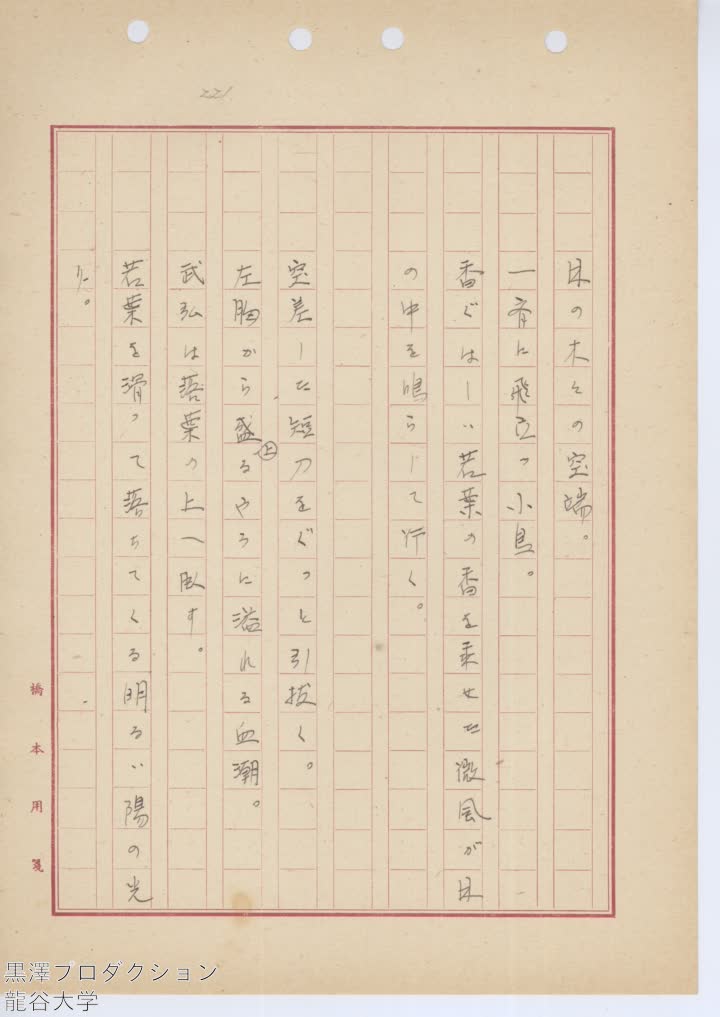 221
林の木々の突端。
一斉に飛立つ小鳥。
香ぐはしい若葉の香を乗せた微風が林
の中を鳴らして行く。
突差した短刀をぐっと引抜く。
左胸から盛上るやうに溢れる血潮。
武弘は落葉の上へ臥す。
若葉を滑って落ちてくる明るい陽の光
橋本用箋
黒澤プロダクション
龍谷大学